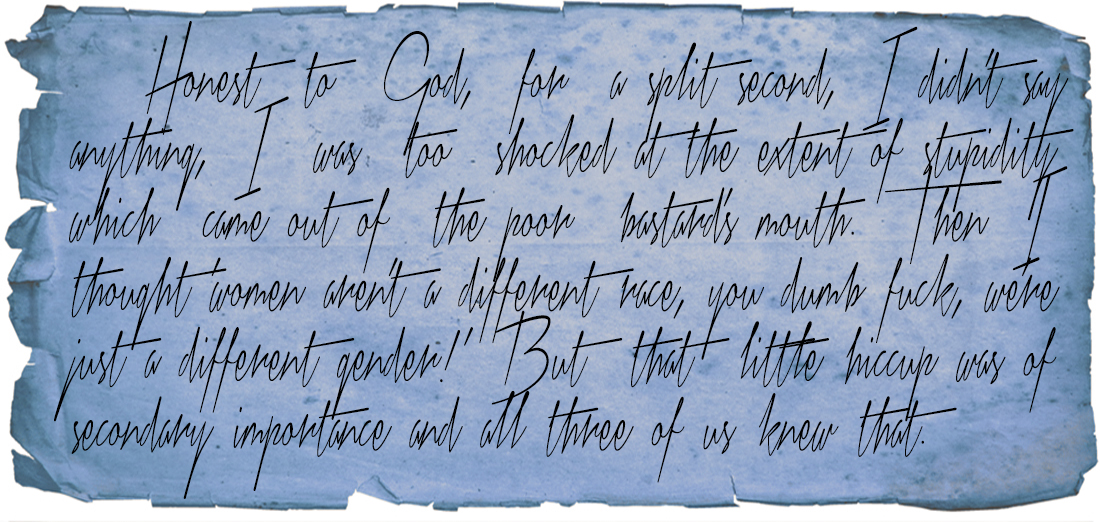 Honest to God, for a split second, I didn't say
anything, I was too shocked at the extent of stupidity
which came out of the poor bastard's mouth. Then I
thought 'women aren't a different race, you dumb fuck, we're
just a different gender!' But that little hiccup was of
secondary importance and all three of us knew that.